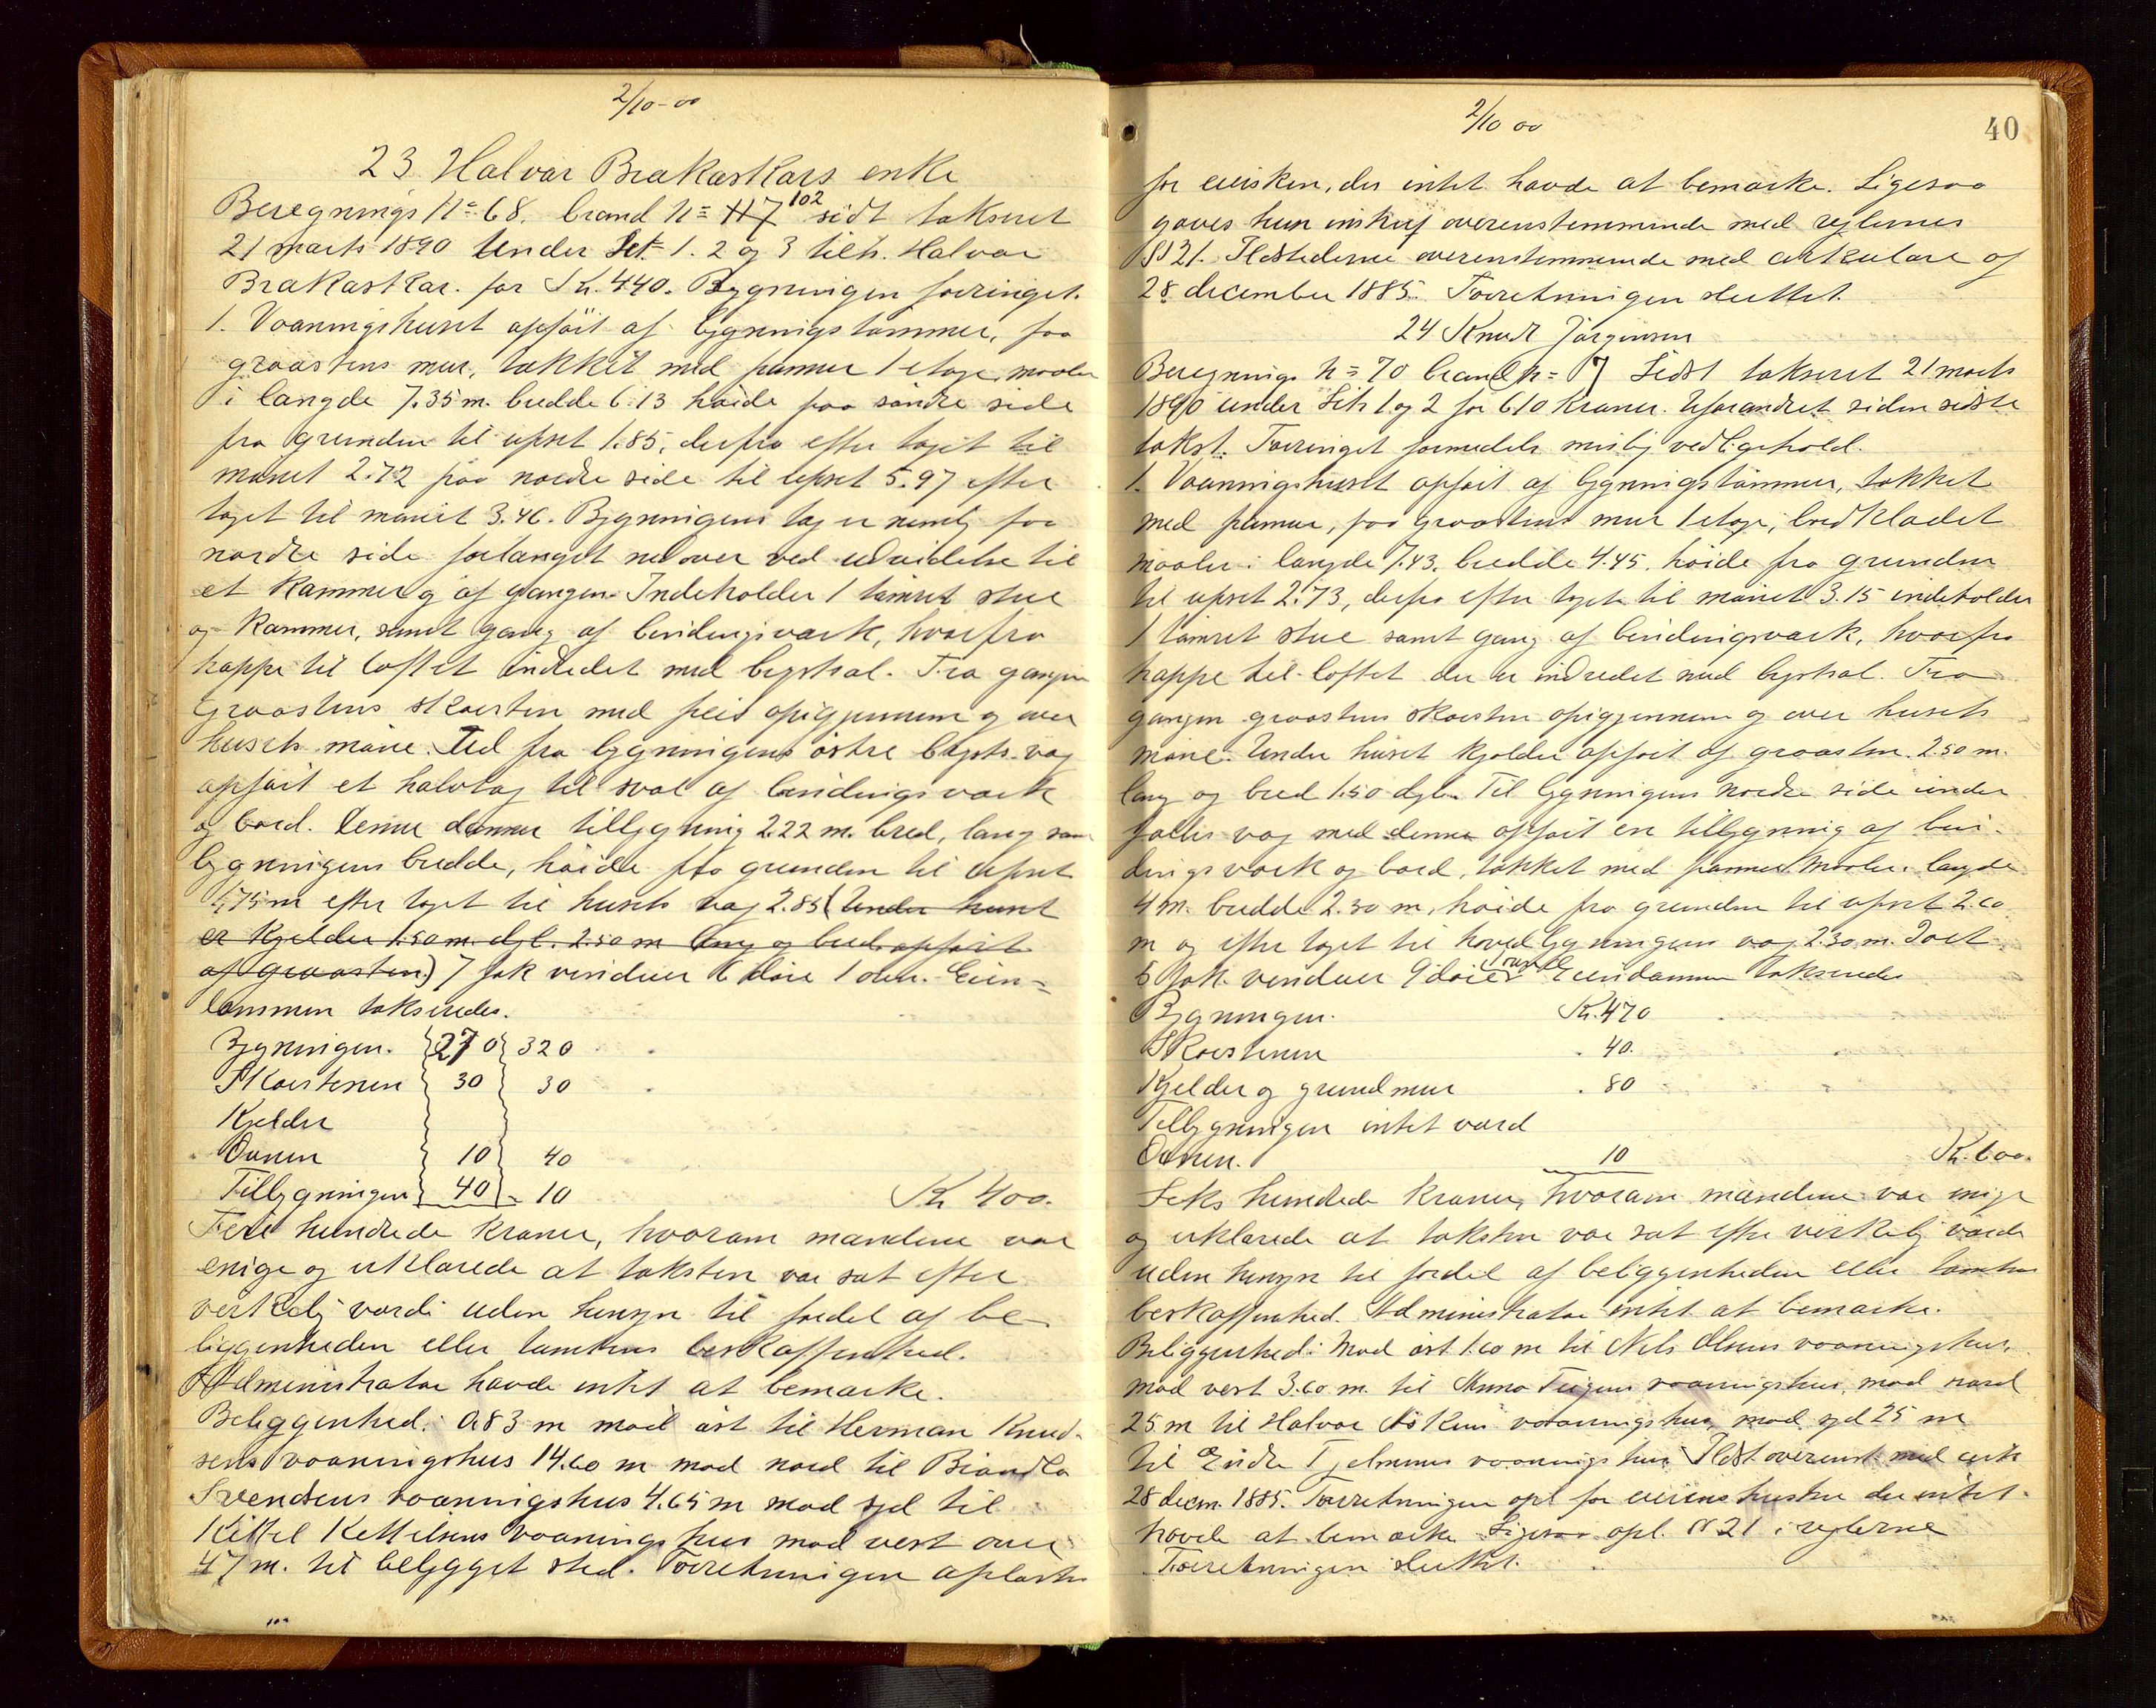 2/10-00
23 Halvor Brakaskars enke
Beregnings N= 68. brand N= 117 102 sidst takseret
21 marts 1890 Under Lit. 1. 2 og 3 tilh. Halvor
Brakaskar. for Kr. 440. Bygningen forringet.
1. Vaaningshuset opført af bygningstømmer, paa
graastens mur, tækket med panner 1 etage, maaler
i længde 7.35 m. bredde 6.13 høide paa søndre side
fra grunden til opset 1.85, derfra efter taget til
mønet 2.72 paa nordre side til opset 5.97 efter
taget til mønet 3.46. Bygningens tag er nemlig paa
nordre side forlænget nedover ved udvidelse til
et kammer og af gangen. Indeholder 1 tømret stue
og kammer, samt gang af bindingsværk, hvorfra
trappe til loftet indredet med brystsval. Fra gangen
graastens skorsten med peis opigjennem og over
husets møne. Ved fra bygningens østre bryst-væg
opført et halvtag til sval af bindingsværk
og bord. Denne danner tilbygning 2.22 m. bred, lang som
bygningens bredde, høide fra grunden til opset
1.75 m efter taget til husets væg 2.85 (Under huset
er kjelder 1.50 m. dyb. 2.50 m lang og bred opført
af graasten) 7 fok vinduer 6 døre 1 ovn. Eien-
dommen takseredes.
Bygningen. 270 320
Skorstenen 30 30
Kjelder
Ovnen 10 40
Tilbygningen 40 - 10 Kr 400.
Fire hundrede kroner, hvorom mændene var
enige og erklærede at taksten var sat efter
verkelig værdi uden hensyn til fordel af be-
liggenheden eller tomtens beskaffenhed.
Administrator havde intet at bemærke.
Beliggenhed: 0.83 m mod øst til Herman Knud-
sens vaaningshus 14.60 m mod nord til Brandla
Svendsens vaaningshus 4.65 m mod syd til
Kittel Kettilsens vaaningshus mod vest over
47 m. til bebygget sted. Forretningen oplæstes
2/10 00
40
for eiersken, der intet havde at bemærke. Ligesaa
gaves hun innskrp overensstemmende med reglernes
§ 21. Ildstederne overensstemmende med cirkulære af
28 december 1885. Forretningen sluttet.
24 Knud Jørgensen
Beregnings N= 70 brand N= 7 Sidst takseret 21 marts
1890 under Lit 1 og 2 for 610 kroner. Uforandret siden sidste
takst. Forringet formedels mislig vedligehold.
1. Vaaningshuset opført af bygningstømmer, tækket
med panner, paa graastens mur 1 etage, bordklædet
maaler i længde 7.43. bredde 4.45. høide fra grunden
til opset 2.73, derfra efter taget til mønet 3.15 indeholder
1 tømret stue samt gang af bindingsværk, hvorfra
trappe til loftet der er indredet med brystsval. Fra
gangen graastens skorsten opigjennem og over husets
møne. Under huset kjelder opført af graasten 2.50 m.
lang og bred 1.50 dyb. Til bygningens nordre side under
fælles væg med denne opført en tilbygning af bin-
dingsværk og bord, tækket med panner. Maaler i længde
4 m. bredde 2.30 m, høide fra grunden til opset 2.60
m og efter taget til hovedbygningens væg 2.30 m. I alt
5 fok. vinduer 9 døre Eiendommen takseredes
Bygningen. Kr. 470
Skorstenen . 40.
Kjelder og grundmur . 80
Tilbygningen intet værd
Ovnen. 10 Kr. 600.
Seks hundrede kroner, hvorom mændene var enige
og erklærede at taksten var sat efter verkelig værdi
uden hensyn til fordel af beliggenheden eller tomtens
beskaffenhed. Administrator intet at bemærke.
Beliggenhed: Mod øst 1.60 m til Nels Olsens vaaningshus,
mod vest 3.60 m. til Teigens vaaningshus, mod nord
25 m til Halvor vaaningshus, mod syd 25 m
til Endre Tjelmens vaaningshus Ildst overenst med cirk
28 decm. 1885. Forretningen opl for eierens hustru der intet
havde at bemærke Ligesaa opl. § 21 i reglerne
Forretningen sluttet.